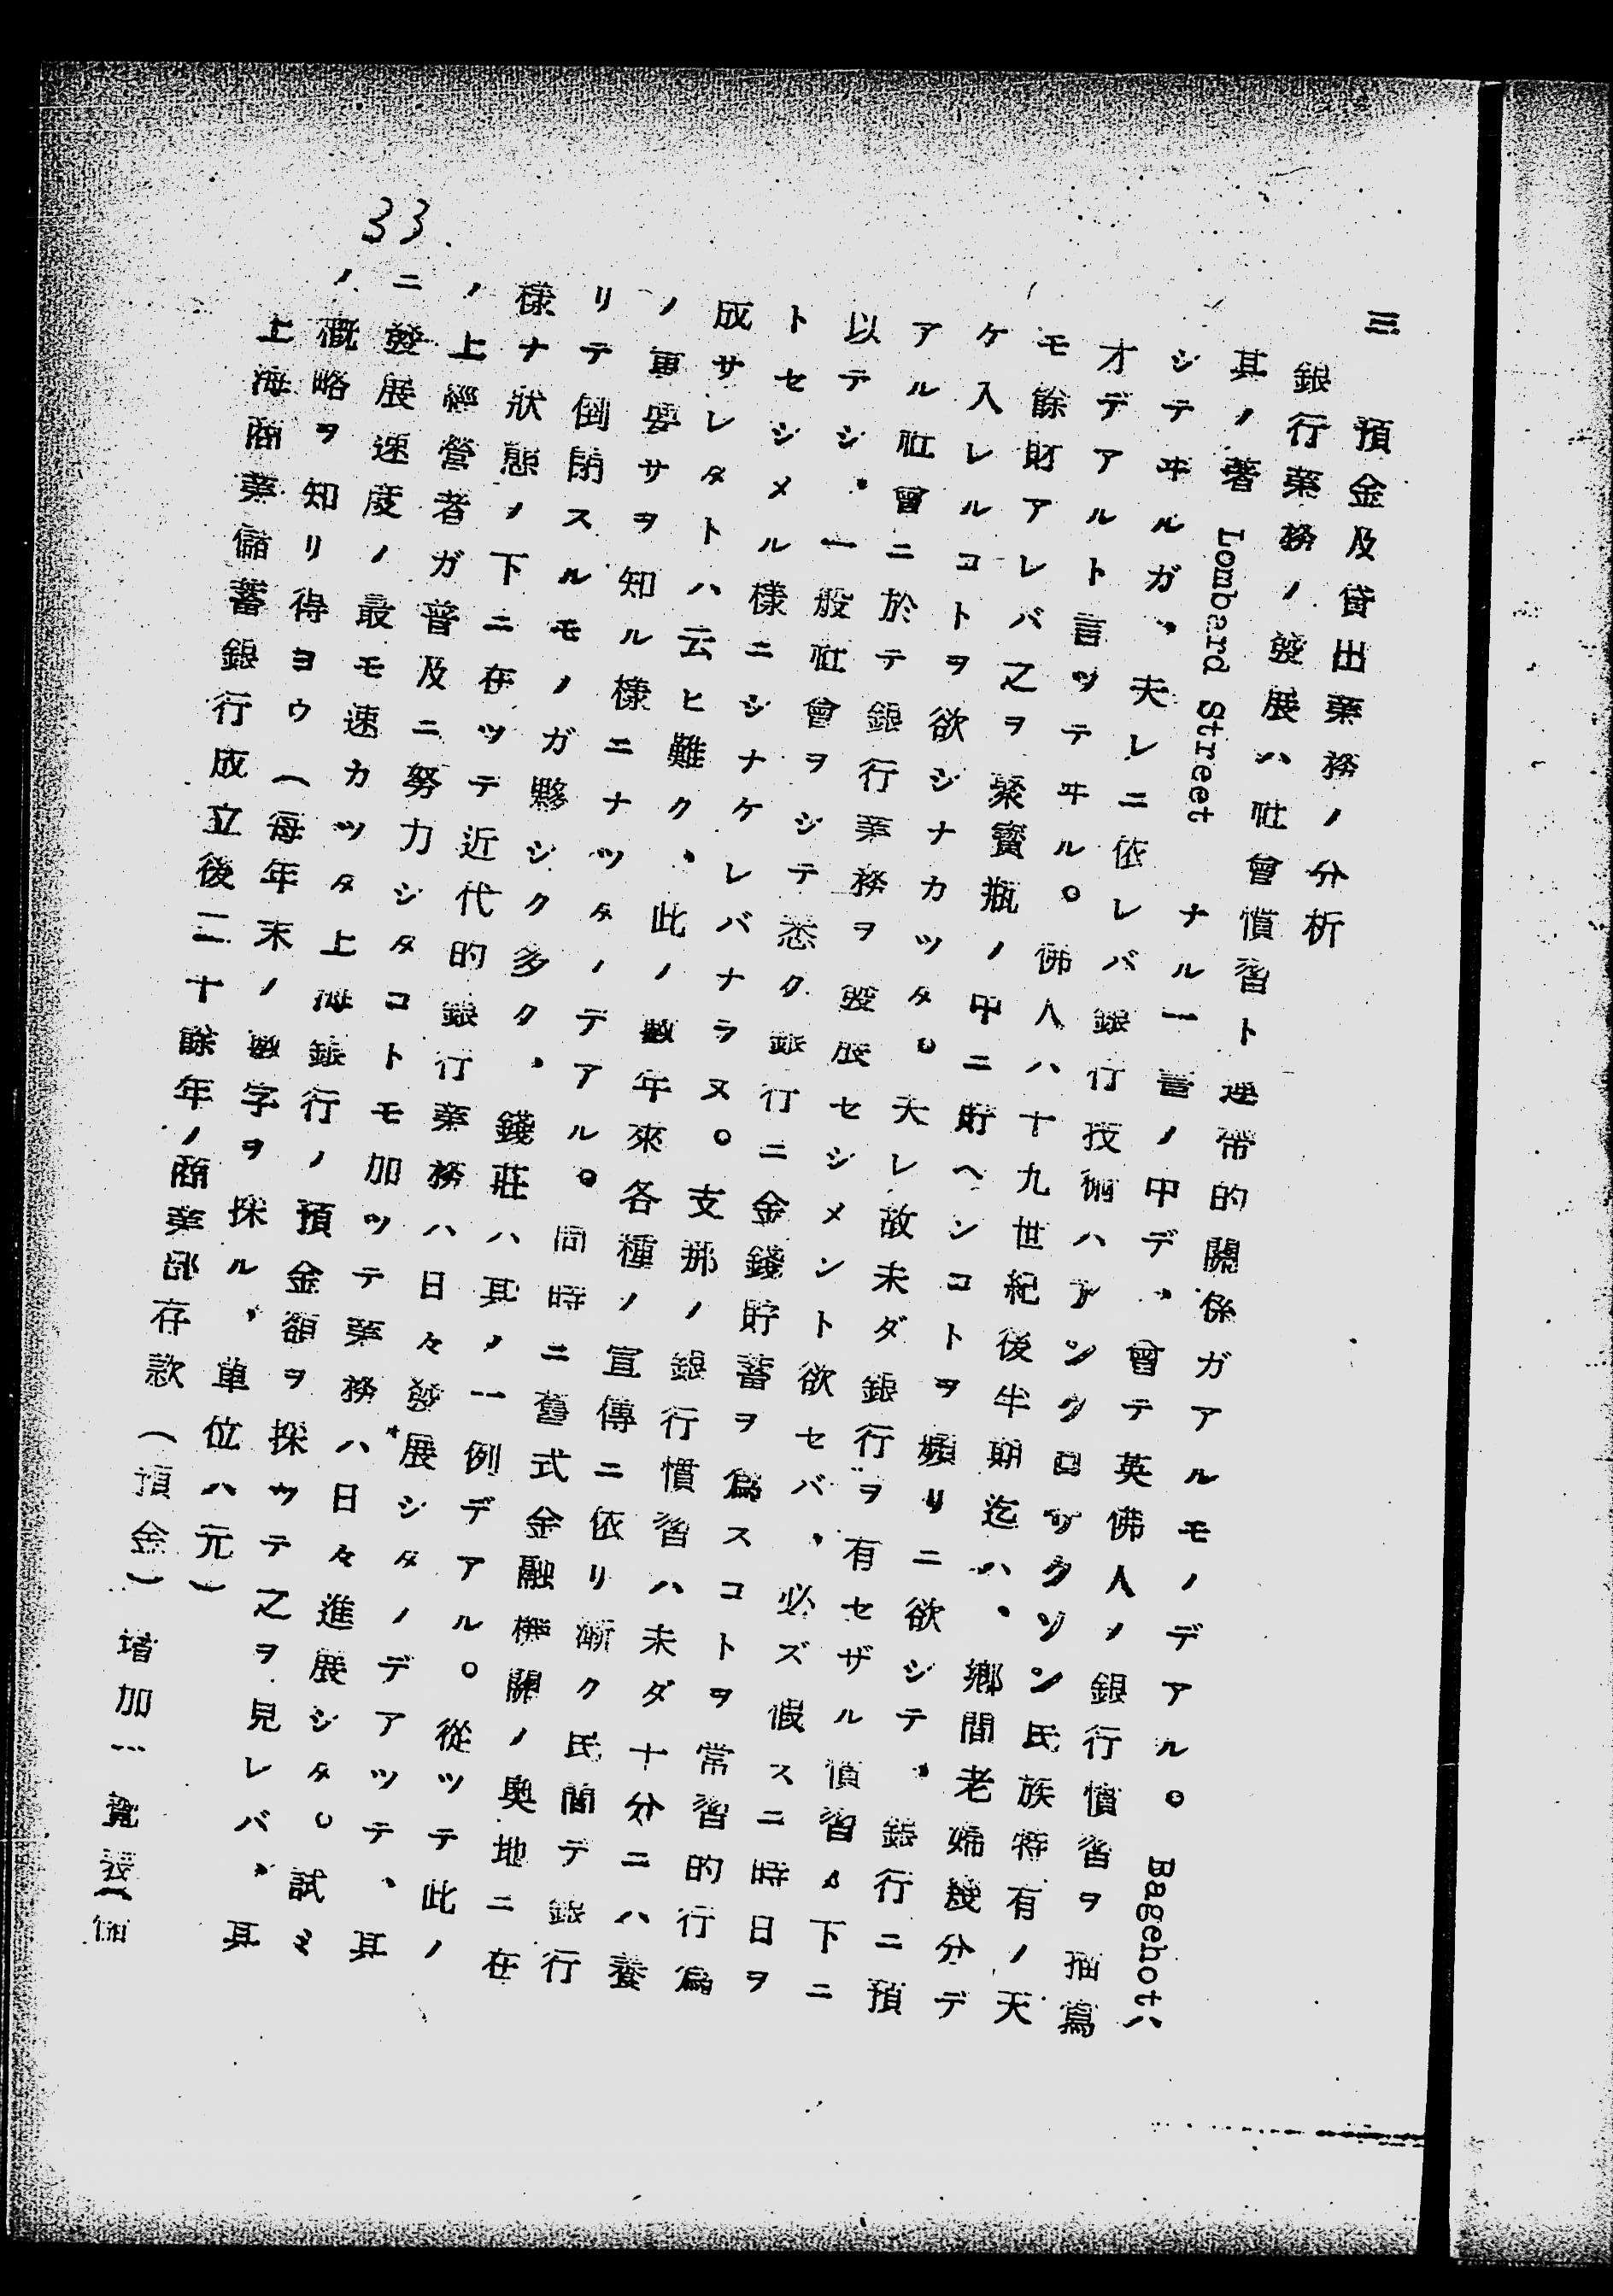 三　預金及貸出業務ノ分析
銀行業務ノ發展ハ社會慣習ト連帶的關係ガアルモノデアル。Bagehotハ
其ノ著 Lombard Street ナル一書ノ中デ、曾テ英佛人ノ銀行慣習ヲ描寫
シテヰルガ、夫レニ依レバ銀行技術ハアングロサクソン民族特有ノ天
才デアルト言ツテヰル。佛人ハ十九世紀後半期迄ハ、鄕間老婦幾分デ
モ餘財アレバ之ヲ聚寶瓶ノ中ニ貯ヘンコトヲ頻リニ欲シテ、銀行ニ預
ケ入レルコトヲ欲シナカツタ。夫レ故未ダ銀行ヲ有セザル慣習ノ下ニ
アル社會ニ於テ銀行業務ヲ發展セシメント欲セバ、必ズ假スニ時日ヲ
以テシ、一般社會ヲシテ悉ク銀行ニ金錢貯蓄ヲ爲スコトヲ常習的行爲
トセシメル樣ニシナケレバナラヌ。支那ノ銀行慣習ハ未ダ十分ニハ養
成サレタトハ云ヒ難ク、此ノ數年來各種ノ宣傳ニ依リ漸ク民間デ銀行
ノ重要サヲ知ル樣ニナツタノデアル。同時ニ舊式金融機關ノ奧地ニ在
リテ倒閉スルモノガ夥シク多ク、錢莊ハ其ノ一例デアル。從ツテ此ノ
樣ナ狀態ノ下ニ在ツテ近代的銀行業務ハ日々發展シタノデアツテ、其
ノ上經營者ガ普及ニ努力シタコトモ加ツテ業務ハ日々進展シタ。試ミ
ニ發展速度ノ最モ速カツタ上海銀行ノ預金額ヲ採ツテ之ヲ見レバ、其
ノ概略ヲ知リ得ヨウ（每年末ノ數字ヲ採ル、單位ハ元）
上海商業儲蓄銀行成立後二十餘年ノ商業部存款（預金）增加一覽表（
33.